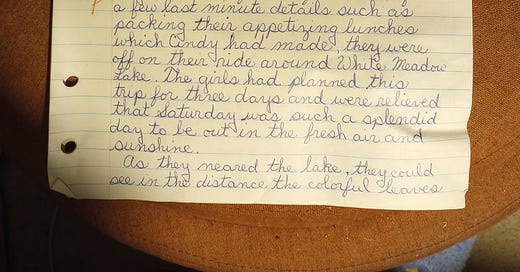 a few last minute details such as
packing their appetizing lunches
which Cindy had made, they were
off on their ride around White Meadow
Lake. The girls had planned this
trip for three days and were relieved
that Saturday was such a splendid
day to be out in the fresh air and
sunshine.
As they neared the lake, they could
see in the distance the colorful leaves